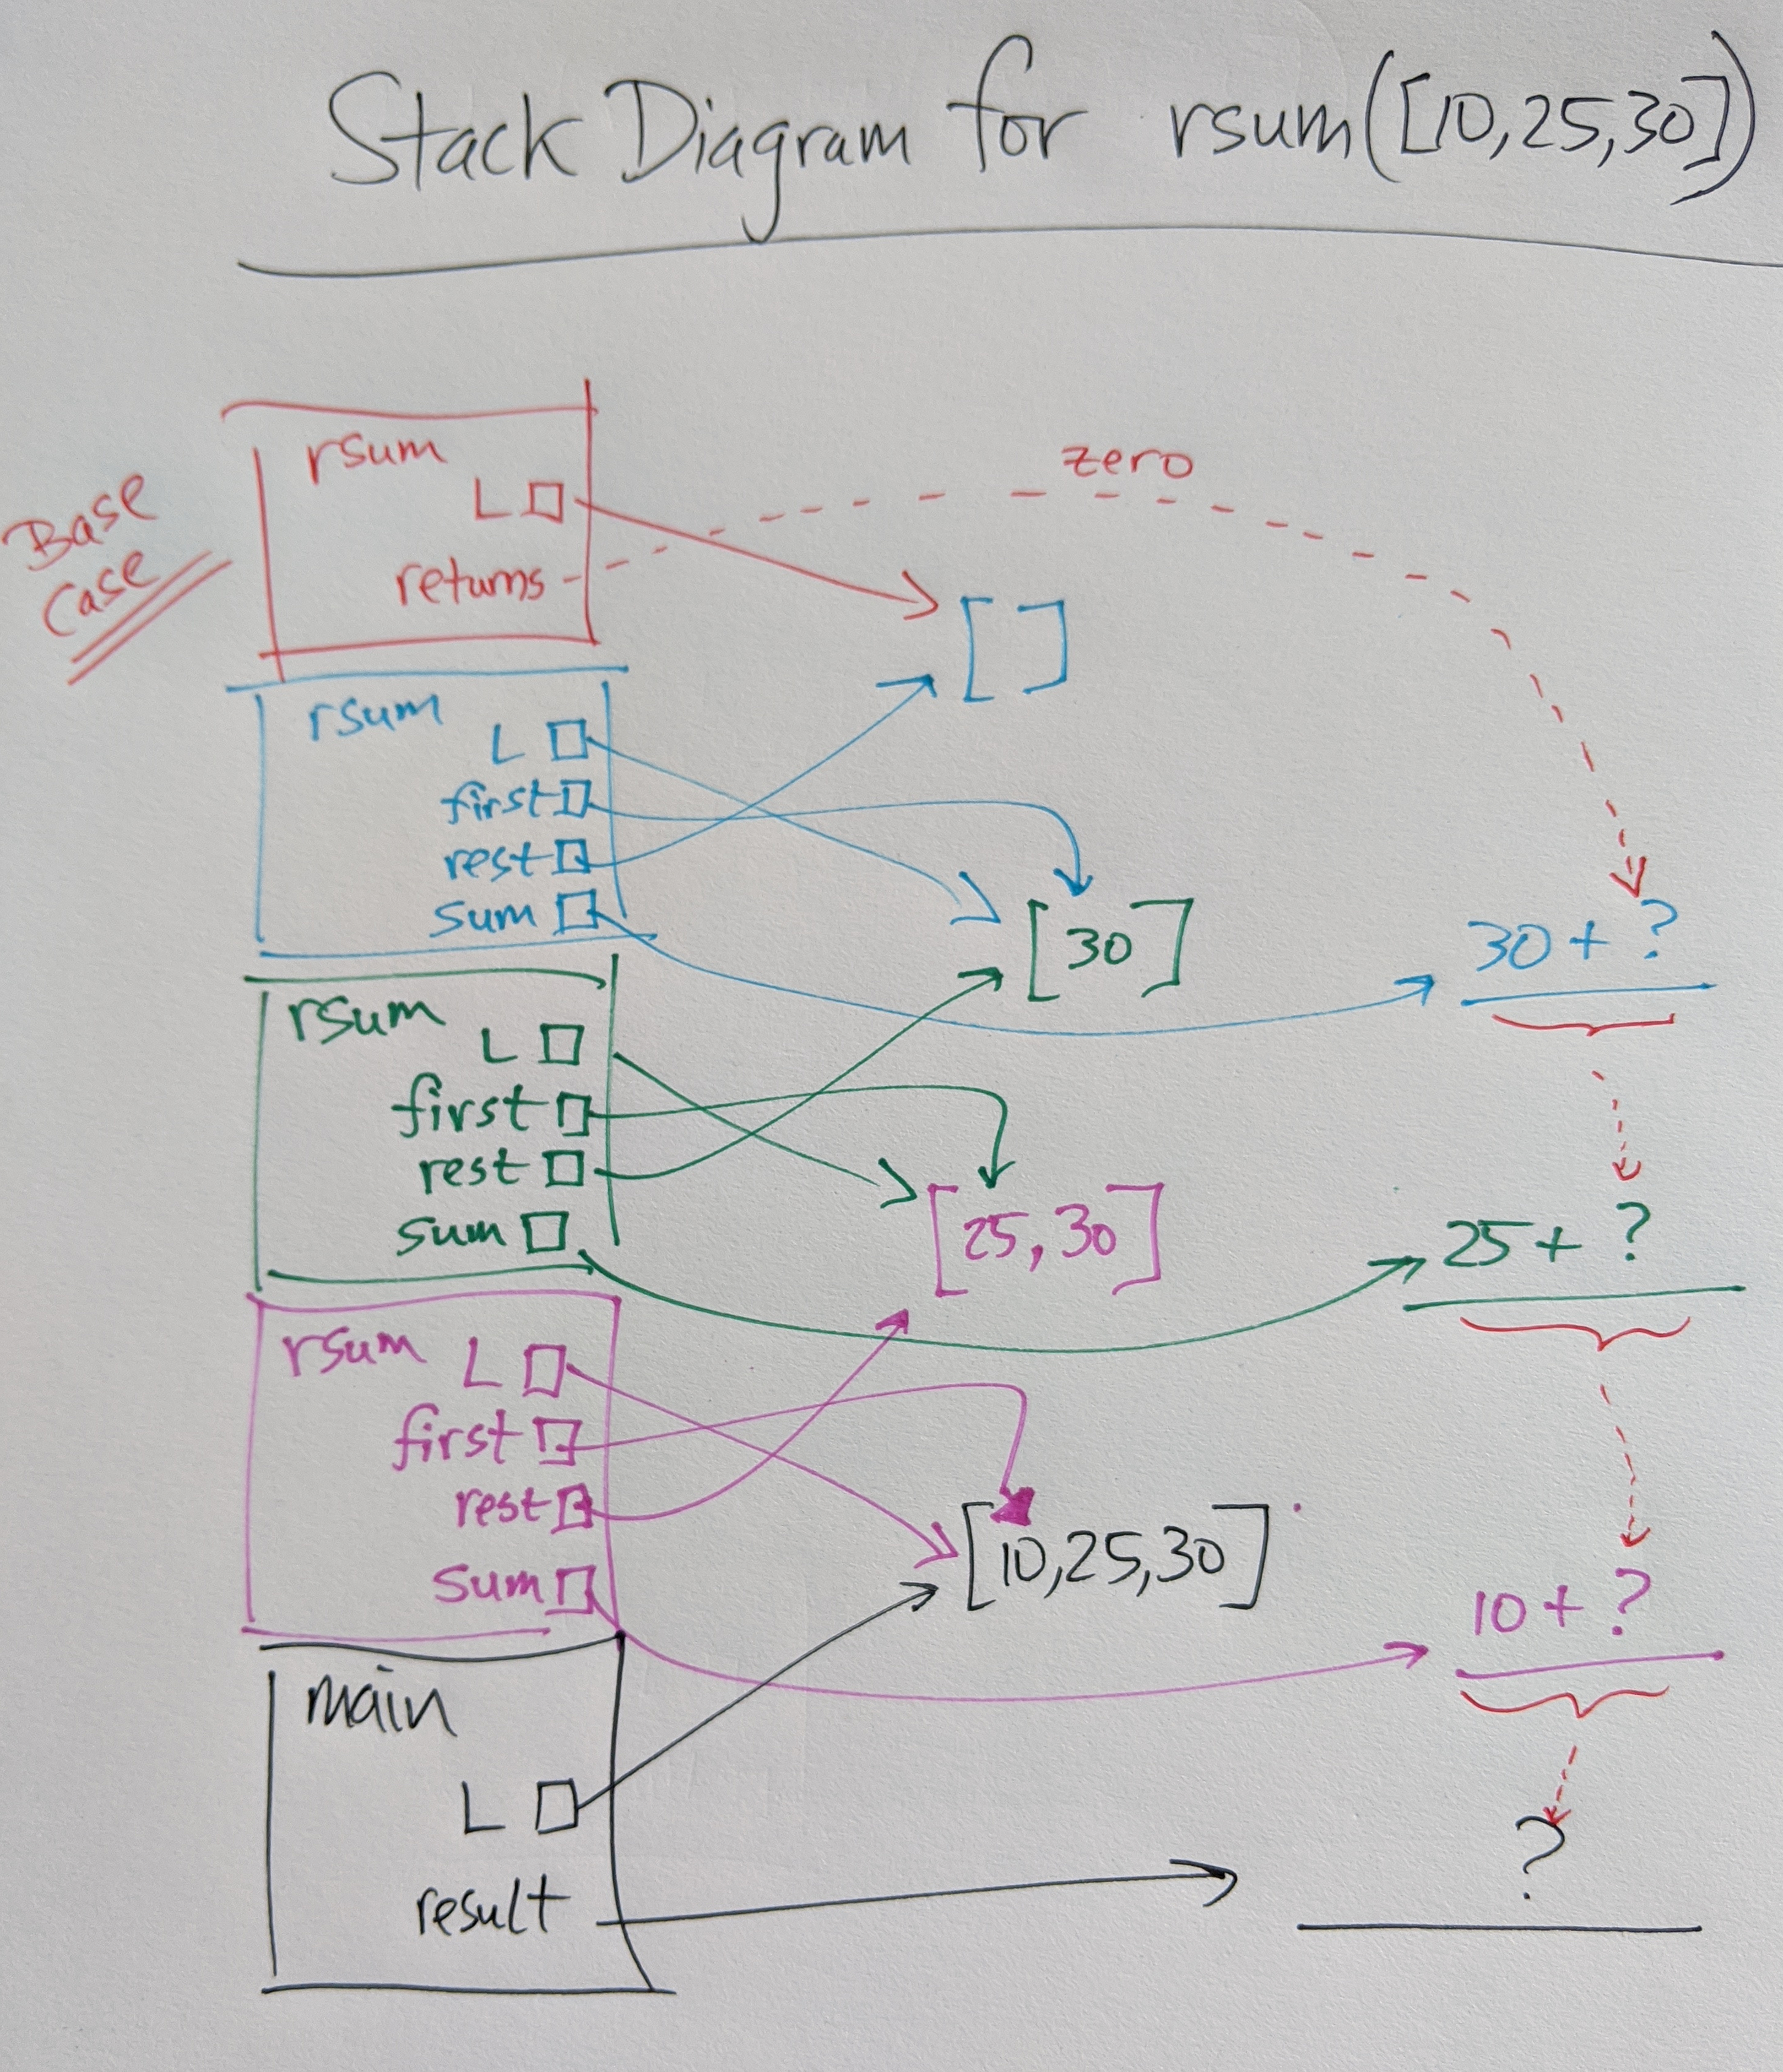 Stack Diagram for rsum([10,25,30])
zero
Base
Case
rsum
L
returns
[ ]
rsum
L
first
rest
sum
[30]
30 + ?
rsum
L
first
rest
sum
[25,30]
25 + ?
rsum
L
first
rest
sum
[10,25,30]
10 + ?
main
L
result
?